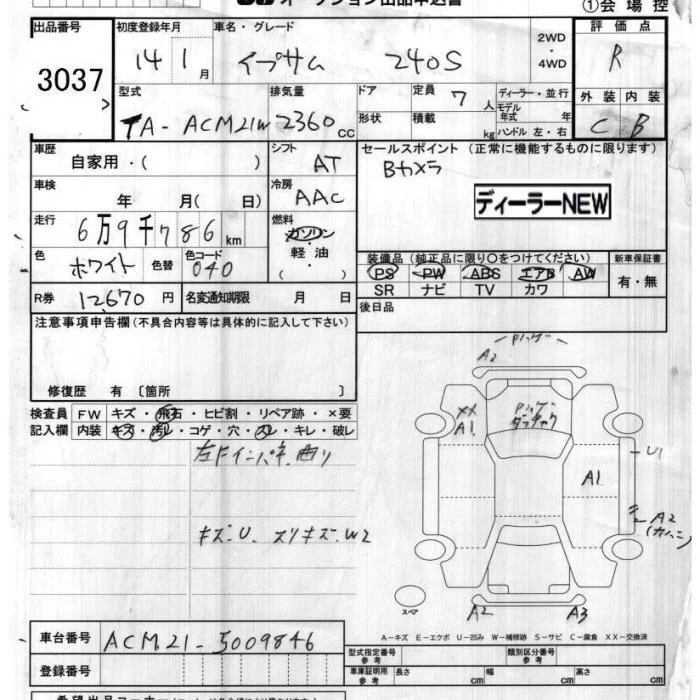 オークション出品申込書 ①会場控
出品番号 初度登録年月 車名・グレード 2WD・4WD 評価点
3037 14 1月 イプサム 240S R
型式 排気量 ドア 定員 7人 ディーラー・並行 外装 内装
TA-ACM21W 2360cc 形状 積載 kg モデル年式 年 ハンドル 左・右 C B
車歴 シフト セールスポイント (正常に機能するものに限ります)
自家用・( ) AT Bカメラ
車検 冷房 ディーラーNEW
年 月( 日) AAC
走行 燃料
6万9千786km ガソリン・軽油
色 ホワイト 色替 色コード 040 ( )
装備品 (純正品に限り○をつけてください) 新車保証書
PS PW ABS エアB AW 有・無
SR ナビ TV カワ
R券 12,670円 名変通知期限 月 日 後日品
注意事項申告欄(不具合内容等は具体的に記入して下さい)
修復歴 有 [箇所 ]
検査員 FW キズ・飛石・ヒビ割・リペア跡・×要
記入欄 内装 キズ・汚レ・コゲ・穴・スレ・キレ・破レ
左Fインパネ曲り
キズ.U. スリキズ.W2
A2
XX A1
A1
U1
A2
A2 A3
スペア
A-キズ E-エクボ U-凹み W-補修跡 S-サビ C-腐食 XX-交換済
車台番号 ACM21-5009846
型式指定番号 参考 類別区分番号 参考
登録番号 車庫証明用 参考 長さ cm 幅 cm 高さ cm